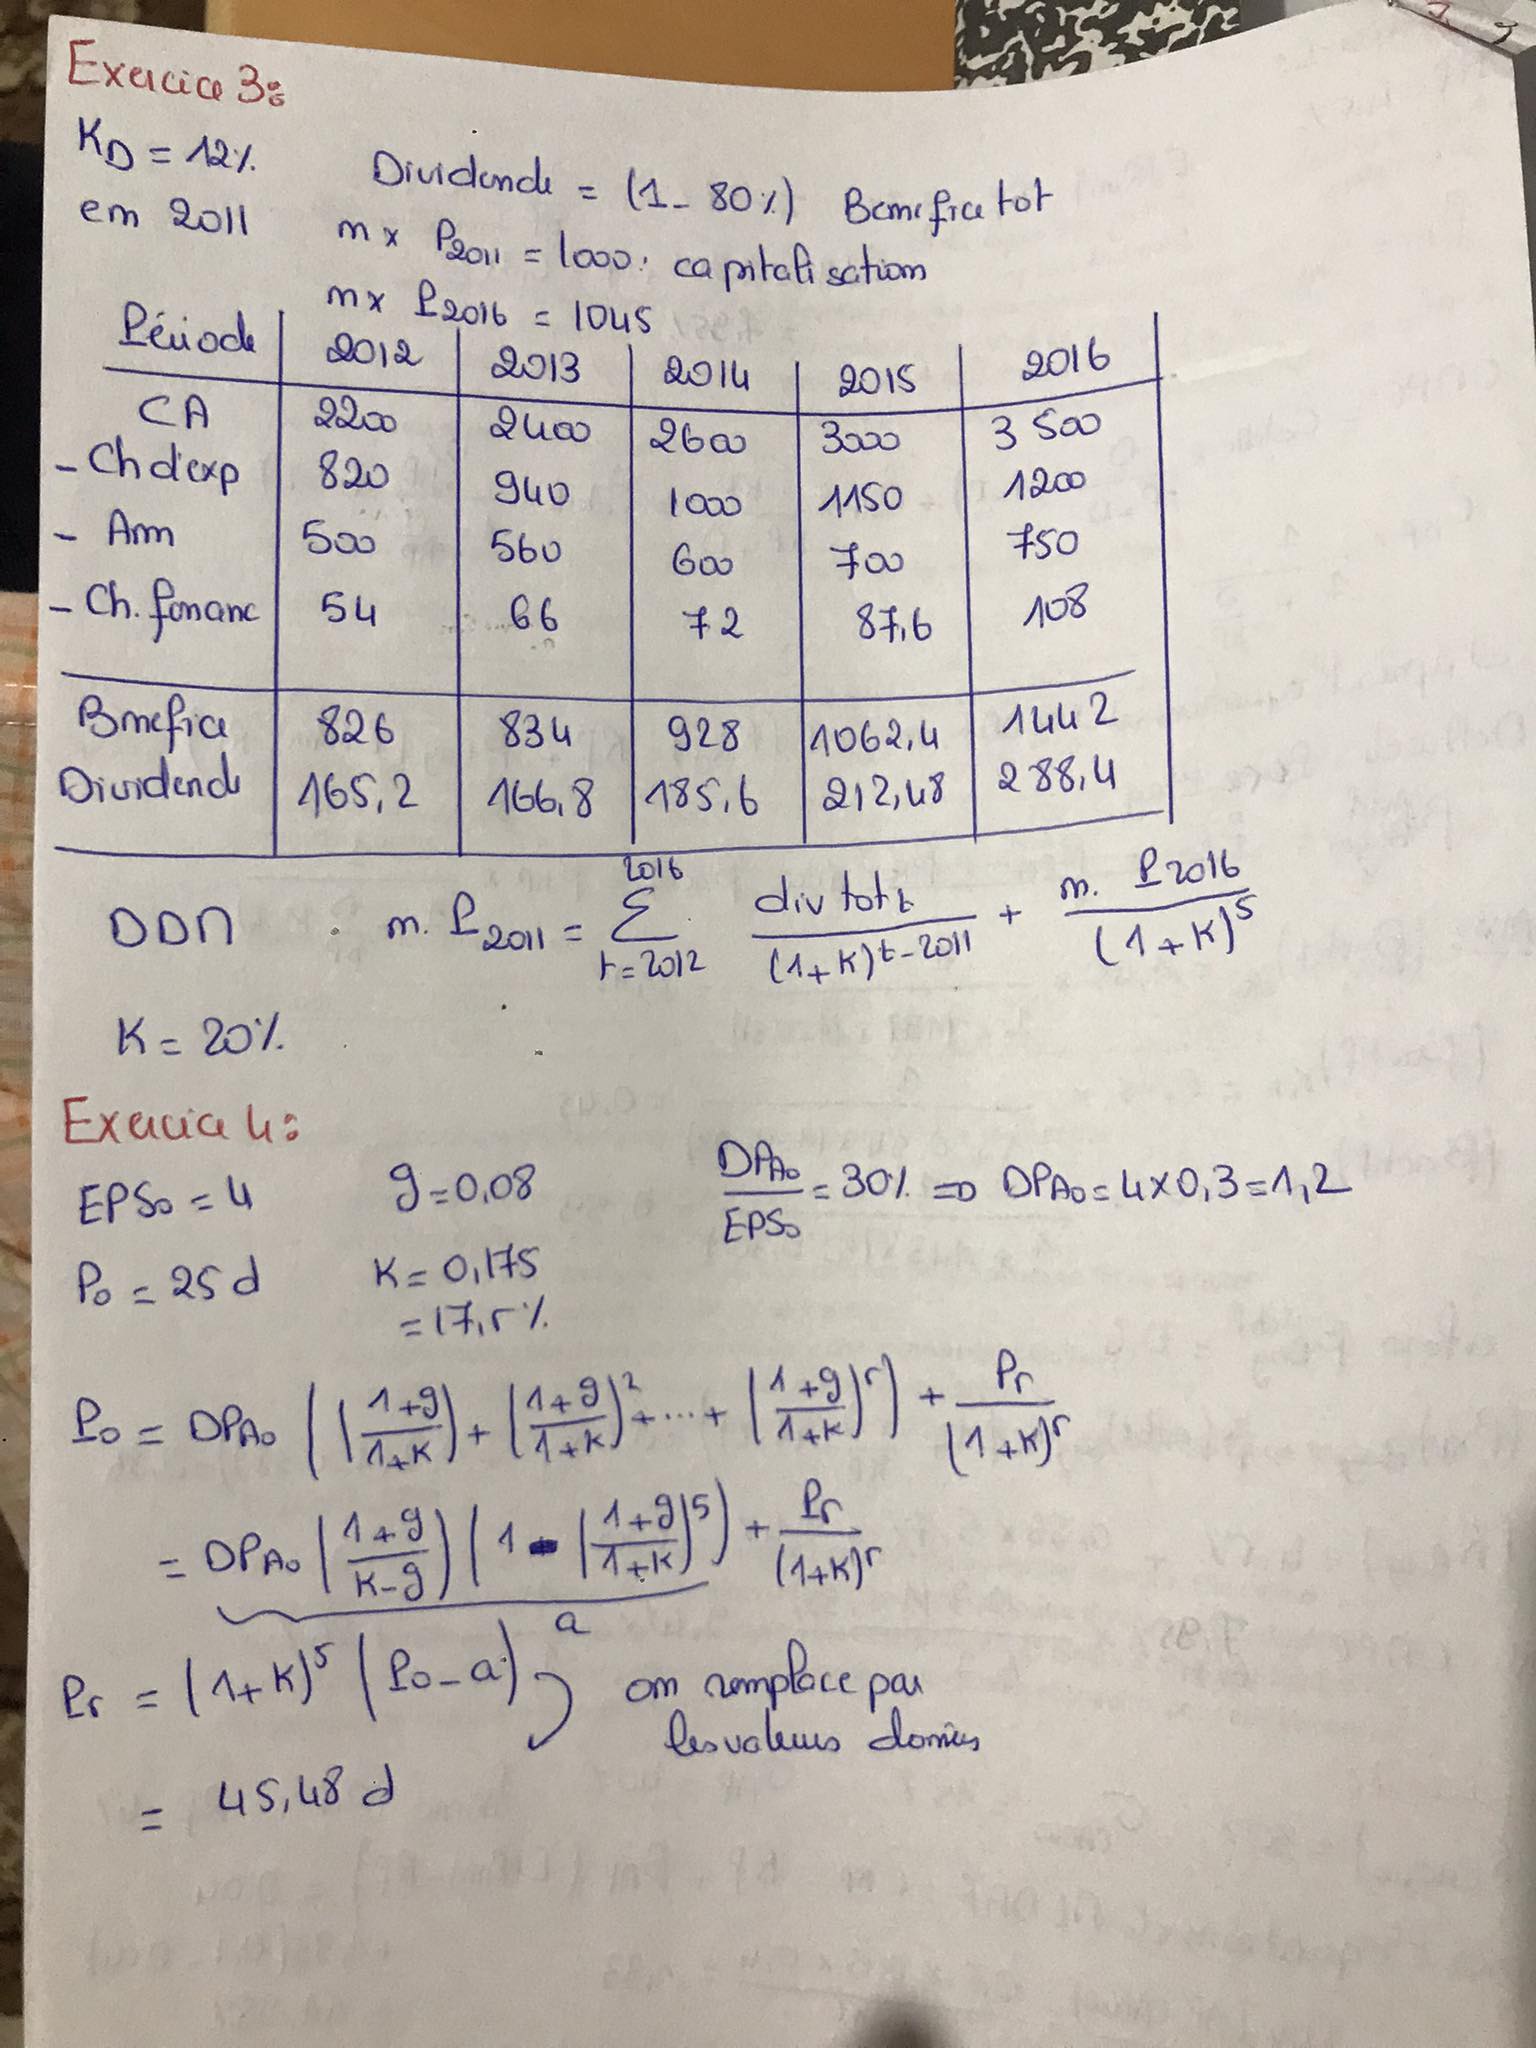 Exercice 3:
KD = 12% Dividende = (1 - 80%) Benefice tot
en 2011 n x P2011 = 1000 : capitalisation
n x P2016 = 1045
Période 2012 2013 2014 2015 2016
CA 2200 2400 2600 3000 3 500
- Ch d'exp 820 940 1000 1150 1200
- Am 500 560 600 700 750
- Ch. financ 54 66 72 87,6 108
Bnefice 826 834 928 1062,4 1442
Dividende 165,2 166,8 185,6 212,48 288,4
DDM n. P2011 = Σ (t=2012 → 2016) div tot t / (1+K)^(t-2011) + n. P2016 / (1+K)^5
K = 20%
Exercice 4:
EPS0 = 4 g = 0,08 DPA0 / EPS0 = 30% => DPA0 = 4 x 0,3 = 1,2
P0 = 25 d K = 0,175
= 17,5%
P0 = DPA0 ( (1+g / 1+K) + (1+g / 1+K)^2 + ... + (1+g / 1+K)^5 ) + P5 / (1+K)^5
= DPA0 (1+g / K-g) (1 - (1+g / 1+K)^5) + P5 / (1+K)^5
a
P5 = (1+K)^5 (P0 - a) on remplace par
les valeurs donnés
= 45,48 d